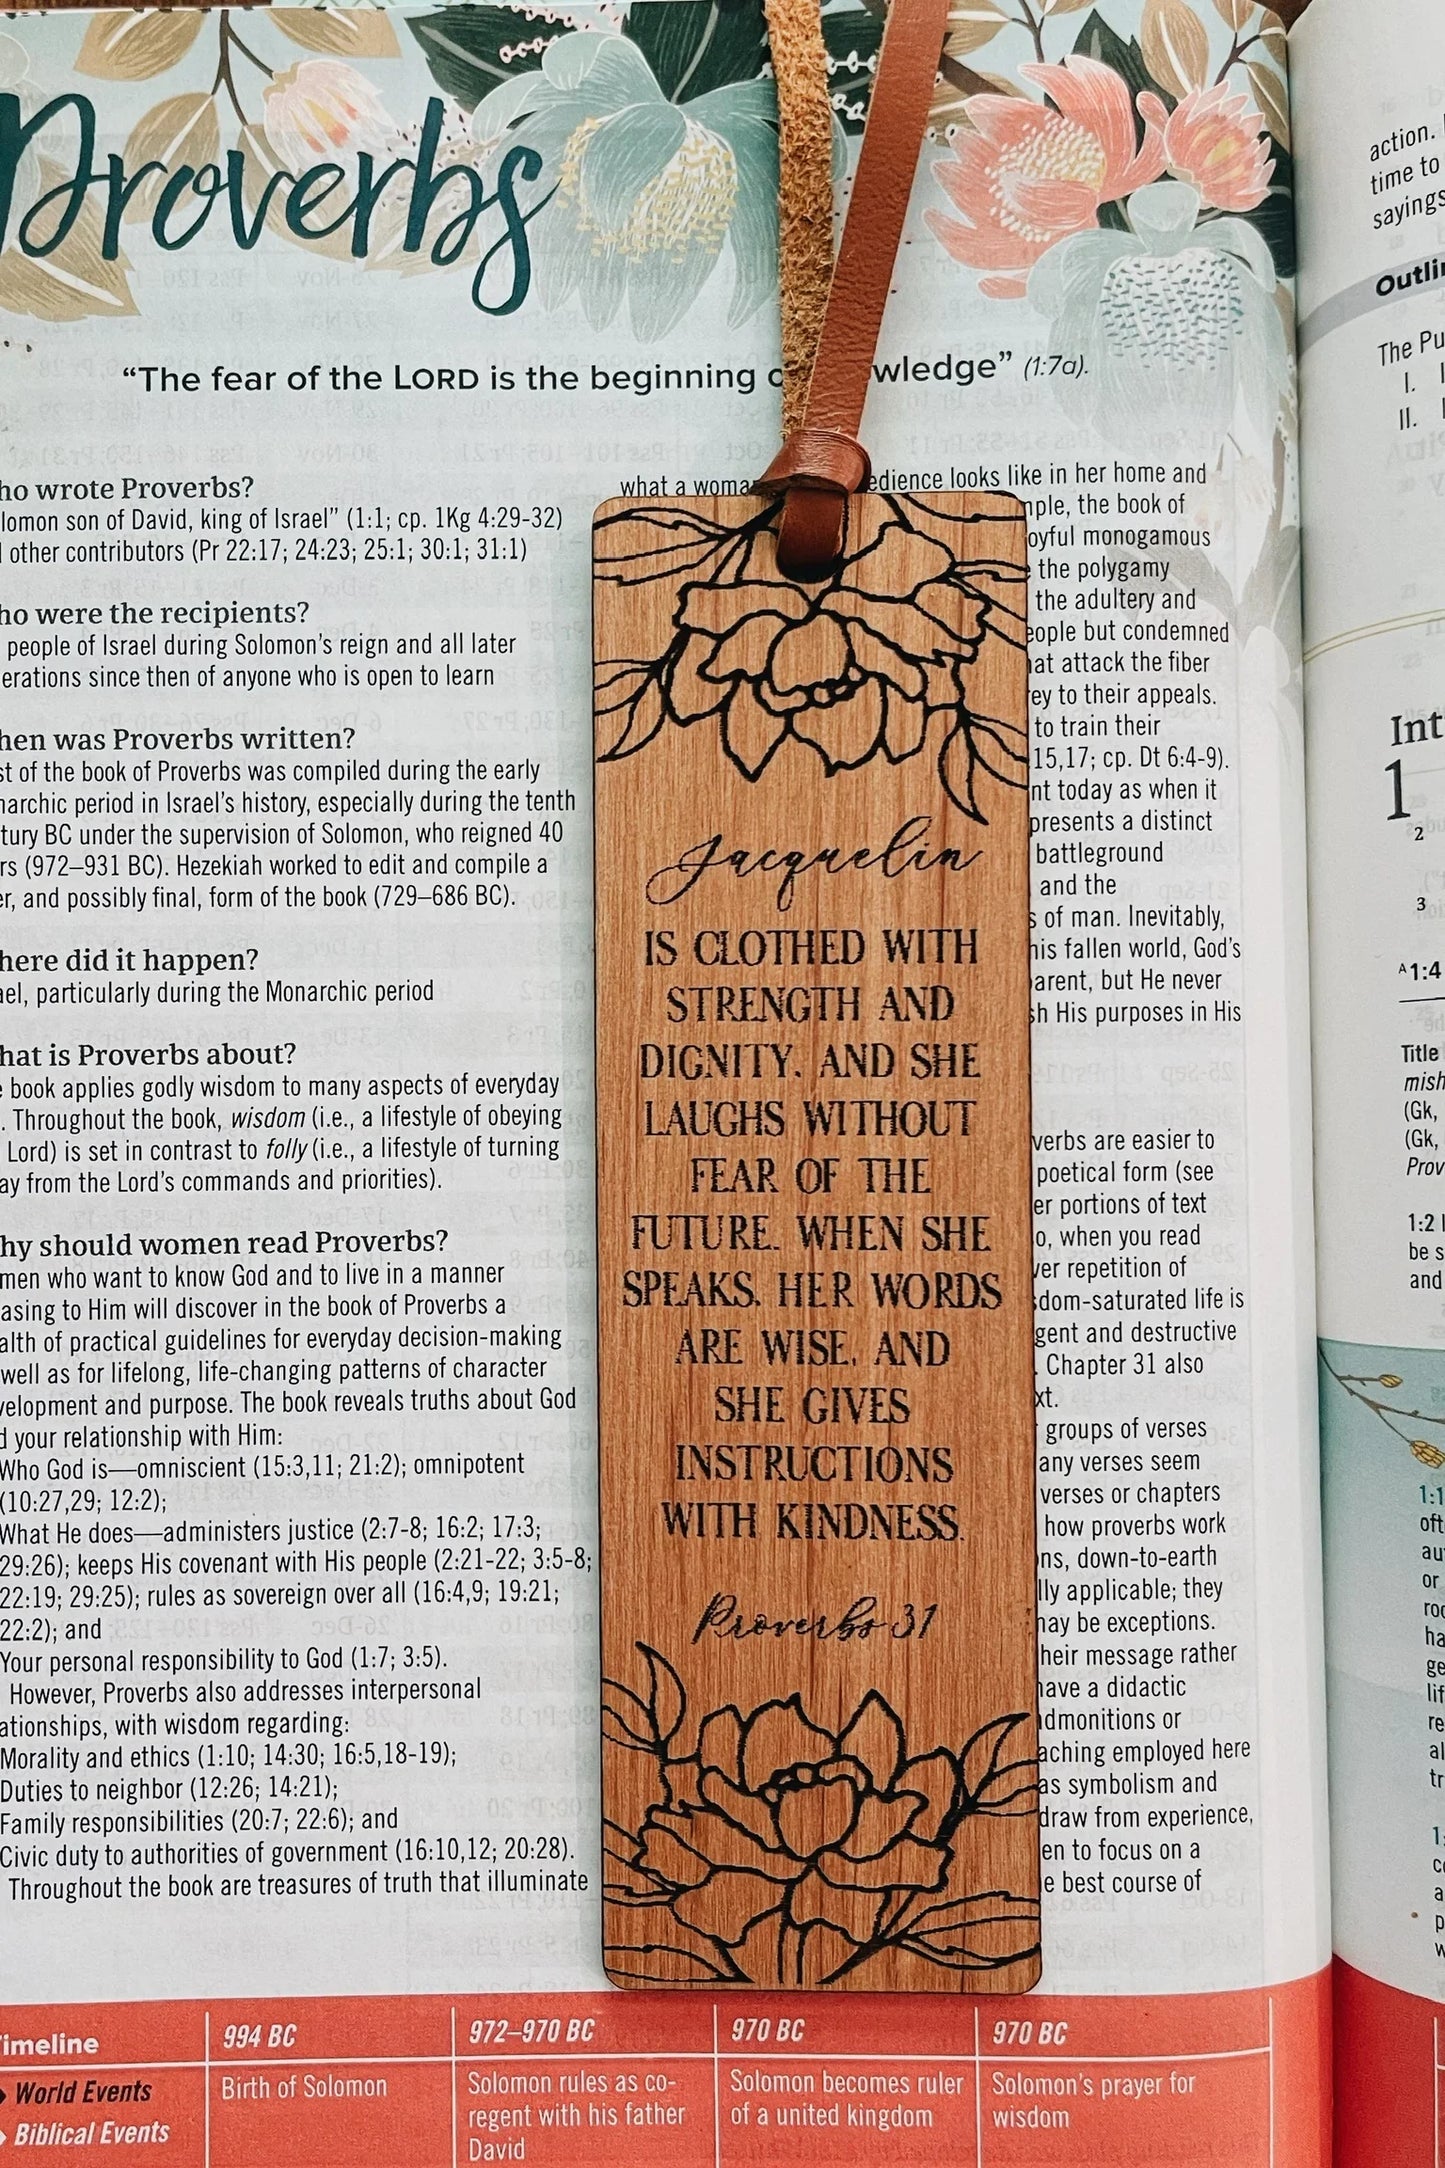 Proverbs
“The fear of the LORD is the beginning wledge” (1:7a).
ho wrote Proverbs?
lomon son of David, king of Israel” (1:1; cp. 1Kg 4:29-32)
other contributors (Pr 22:17; 24:23; 25:1; 30:1; 31:1)
ho were the recipients?
people of Israel during Solomon’s reign and all later
erations since then of anyone who is open to learn
hen was Proverbs written?
st of the book of Proverbs was compiled during the early
narchic period in Israel’s history, especially during the tenth
tury BC under the supervision of Solomon, who reigned 40
rs (972–931 BC). Hezekiah worked to edit and compile a
er, and possibly final, form of the book (729–686 BC).
here did it happen?
ael, particularly during the Monarchic period
hat is Proverbs about?
book applies godly wisdom to many aspects of everyday
. Throughout the book, wisdom (i.e., a lifestyle of obeying
Lord) is set in contrast to folly (i.e., a lifestyle of turning
ay from the Lord’s commands and priorities).
hy should women read Proverbs?
men who want to know God and to live in a manner
asing to Him will discover in the book of Proverbs a
alth of practical guidelines for everyday decision-making
well as for lifelong, life-changing patterns of character
velopment and purpose. The book reveals truths about God
d your relationship with Him:
Who God is—omniscient (15:3,11; 21:2); omnipotent
(10:27,29; 12:2);
What He does—administers justice (2:7-8; 16:2; 17:3;
29:26); keeps His covenant with His people (2:21-22; 3:5-8;
22:19; 29:25); rules as sovereign over all (16:4,9; 19:21;
22:2); and
Your personal responsibility to God (1:7; 3:5).
However, Proverbs also addresses interpersonal
ationships, with wisdom regarding:
Morality and ethics (1:10; 14:30; 16:5,18-19);
Duties to neighbor (12:26; 14:21);
Family responsibilities (20:7; 22:6); and
Civic duty to authorities of government (16:10,12; 20:28).
Throughout the book are treasures of truth that illuminate
Jacquelin
IS CLOTHED WITH
STRENGTH AND
DIGNITY, AND SHE
LAUGHS WITHOUT
FEAR OF THE
FUTURE. WHEN SHE
SPEAKS, HER WORDS
ARE WISE, AND
SHE GIVES
INSTRUCTIONS
WITH KINDNESS.
Proverbs 31
what a woma edience looks like in her home and
mple, the book of
oyful monogamous
the polygamy
the adultery and
eople but condemned
hat attack the fiber
ey to their appeals.
to train their
15,17; cp. Dt 6:4-9).
nt today as when it
presents a distinct
battleground
and the
s of man. Inevitably,
his fallen world, God’s
arent, but He never
sh His purposes in His
verbs are easier to
poetical form (see
er portions of text
o, when you read
ver repetition of
sdom-saturated life is
gent and destructive
. Chapter 31 also
xt.
groups of verses
any verses seem
verses or chapters
how proverbs work
ns, down-to-earth
lly applicable; they
may be exceptions.
heir message rather
have a didactic
admonitions or
aching employed here
as symbolism and
draw from experience,
en to focus on a
e best course of
imeline 994 BC 972–970 BC 970 BC 970 BC
World Events Birth of Solomon Solomon rules as co- Solomon becomes ruler Solomon’s prayer for
Biblical Events regent with his father of a united kingdom wisdom
David
action.
time to
sayings
Outli
The Pu
I.
II.
Int
1
2
3
A1:4
Title
mish
(Gk,
(Gk,
Prov
1:2
be s
and
1:1
oft
au
or
roo
ha
ge
lif
re
al
tr